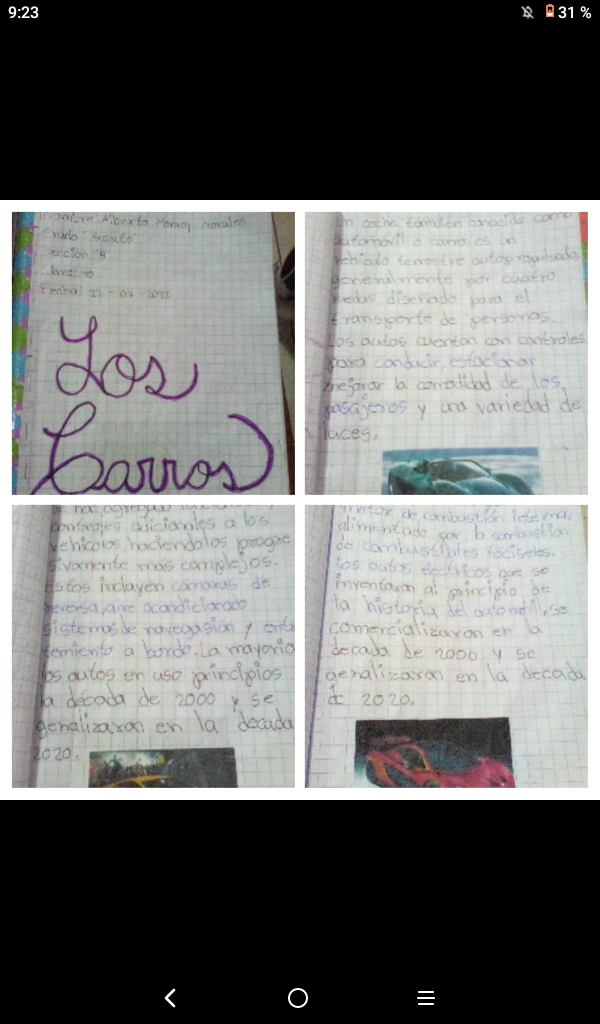 9:23
31 %
Nombre: Alberto Morales
Grado: Sexto
Sección: A
Clave: 10
Fecha: 22-07-2025
Los
Carros
Un coche también conocido como
automóvil o carro es un
vehículo terrestre autopropulsado,
generalmente por cuatro
diseñado para el
transporte de personas.
los autos cuentan con controles
para conducir, estacionar
mejorar la comodidad de los
pasajeros y una variedad de
luces.
se han agregado
controles adicionales a los
vehículos, haciendolos progre
sivamente más complejos.
Estos incluyen cámaras de
reversa, aire acondicionado
sistemas de navegasión y
a bordo. La mayoria
los autos en uso principios
la década de 2000 y se
genalizaron en la decada
2020.
motor de combustión interna,
alimentado por la combustión
de combustibles fósiseles.
Los autos eléctricos que se
inventaron al principio de
la historia del automóvil, se
comercializaron en la
decada de 2000 y se
genalizaron en la decada
de 2020.